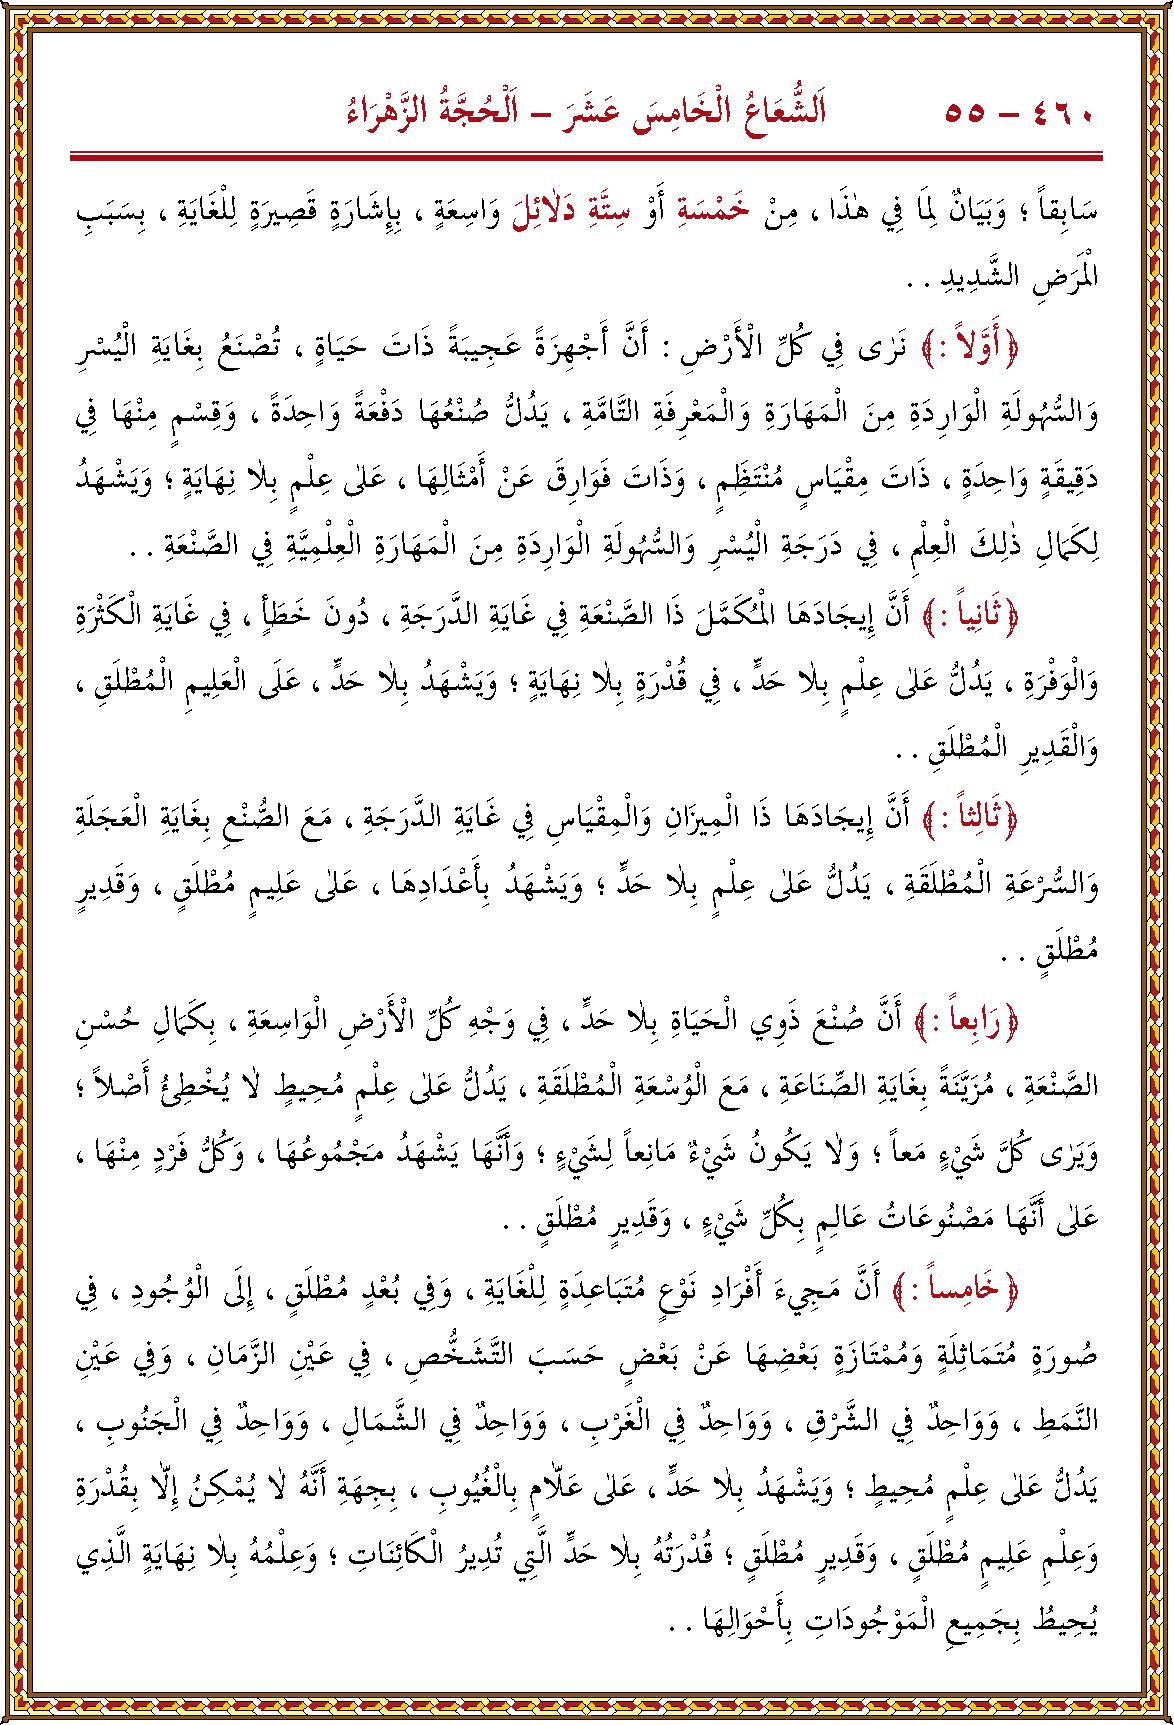 ٤٦٠ – ٥٥ اَلشُّعَاعُ الْخَامِسَ عَشَرَ – اَلْحُجَّةُ الزَّهْرَاءُ
سَابِقاً ؛ وَبَيَانٌ لِمَا فِي هٰذَا ، مِنْ خَمْسَةِ أَوْ سِتَّةِ دَلَائِلَ وَاسِعَةٍ ، بِإِشَارَةٍ قَصِيرَةٍ لِلْغَايَةِ ، بِسَبَبِ
الْمَرَضِ الشَّدِيدِ . .
﴿ أَوَّلاً : ﴾ نَرٰى فِي كُلِّ الْأَرْضِ : أَنَّ أَجْهِزَةً عَجِيبَةً ذَاتَ حَيَاةٍ ، تُصْنَعُ بِغَايَةِ الْيُسْرِ
وَالسُّهُولَةِ الْوَارِدَةِ مِنَ الْمَهَارَةِ وَالْمَعْرِفَةِ التَّامَّةِ ، يَدُلُّ صُنْعُهَا دَفْعَةً وَاحِدَةً ، وَقِسْمٍ مِنْهَا فِي
دَقِيقَةٍ وَاحِدَةٍ ، ذَاتَ مِقْيَاسٍ مُنْتَظِمٍ ، وَذَاتَ فَوَارِقَ عَنْ أَمْثَالِهَا ، عَلٰى عِلْمٍ بِلَا نِهَايَةٍ ؛ وَيَشْهَدُ
لِكَمَالِ ذٰلِكَ الْعِلْمِ ، فِي دَرَجَةِ الْيُسْرِ وَالسُّهُولَةِ الْوَارِدَةِ مِنَ الْمَهَارَةِ الْعِلْمِيَّةِ فِي الصَّنْعَةِ . .
﴿ ثَانِياً : ﴾ أَنَّ إِيجَادَهَا الْمُكَمَّلَ ذَا الصَّنْعَةِ فِي غَايَةِ الدَّرَجَةِ ، دُونَ خَطَأٍ ، فِي غَايَةِ الْكَثْرَةِ
وَالْوَفْرَةِ ، يَدُلُّ عَلٰى عِلْمٍ بِلَا حَدٍّ ، فِي قُدْرَةٍ بِلَا نِهَايَةٍ ؛ وَيَشْهَدُ بِلَا حَدٍّ ، عَلَى الْعَلِيمِ الْمُطْلَقِ ،
وَالْقَدِيرِ الْمُطْلَقِ . .
﴿ ثَالِثاً : ﴾ أَنَّ إِيجَادَهَا ذَا الْمِيزَانِ وَالْمِقْيَاسِ فِي غَايَةِ الدَّرَجَةِ ، مَعَ الصُّنْعِ بِغَايَةِ الْعَجَلَةِ
وَالسُّرْعَةِ الْمُطْلَقَةِ ، يَدُلُّ عَلٰى عِلْمٍ بِلَا حَدٍّ ؛ وَيَشْهَدُ بِأَعْدَادِهَا ، عَلٰى عَلِيمٍ مُطْلَقٍ ، وَقَدِيرٍ
مُطْلَقٍ . .
﴿ رَابِعاً : ﴾ أَنَّ صُنْعَ ذَوِي الْحَيَاةِ بِلَا حَدٍّ ، فِي وَجْهِ كُلِّ الْأَرْضِ الْوَاسِعَةِ ، بِكَمَالِ حُسْنِ
الصَّنْعَةِ ، مُزَيَّنَةً بِغَايَةِ الصِّنَاعَةِ ، مَعَ الْوُسْعَةِ الْمُطْلَقَةِ ، يَدُلُّ عَلٰى عِلْمٍ مُحِيطٍ لَا يُخْطِئُ أَصْلاً ؛
وَيَرٰى كُلَّ شَيْءٍ مَعاً ؛ وَلَا يَكُونُ شَيْءٌ مَانِعاً لِشَيْءٍ ؛ وَأَنَّهَا يَشْهَدُ مَجْمُوعُهَا ، وَكُلُّ فَرْدٍ مِنْهَا ،
عَلٰى أَنَّهَا مَصْنُوعَاتُ عَالِمٍ بِكُلِّ شَيْءٍ ، وَقَدِيرٍ مُطْلَقٍ . .
﴿ خَامِساً : ﴾ أَنَّ مَجِيءَ أَفْرَادِ نَوْعٍ مُتَبَاعِدَةٍ لِلْغَايَةِ ، وَفِي بُعْدٍ مُطْلَقٍ ، إِلَى الْوُجُودِ ، فِي
صُورَةٍ مُتَمَاثِلَةٍ وَمُمْتَازَةٍ بَعْضِهَا عَنْ بَعْضٍ حَسَبَ التَّشَخُّصِ ، فِي عَيْنِ الزَّمَانِ ، وَفِي عَيْنِ
النَّمَطِ ، وَوَاحِدٌ فِي الشَّرْقِ ، وَوَاحِدٌ فِي الْغَرْبِ ، وَوَاحِدٌ فِي الشَّمَالِ ، وَوَاحِدٌ فِي الْجَنُوبِ ،
يَدُلُّ عَلٰى عِلْمٍ مُحِيطٍ ؛ وَيَشْهَدُ بِلَا حَدٍّ ، عَلٰى عَلَّامٍ بِالْغُيُوبِ ، بِجِهَةِ أَنَّهُ لَا يُمْكِنُ إِلَّا بِقُدْرَةِ
وَعِلْمِ عَلِيمٍ مُطْلَقٍ ، وَقَدِيرٍ مُطْلَقٍ ؛ قُدْرَتُهُ بِلَا حَدٍّ الَّتِي تُدِيرُ الْكَائِنَاتِ ؛ وَعِلْمُهُ بِلَا نِهَايَةٍ الَّذِي
يُحِيطُ بِجَمِيعِ الْمَوْجُودَاتِ بِأَحْوَالِهَا . .